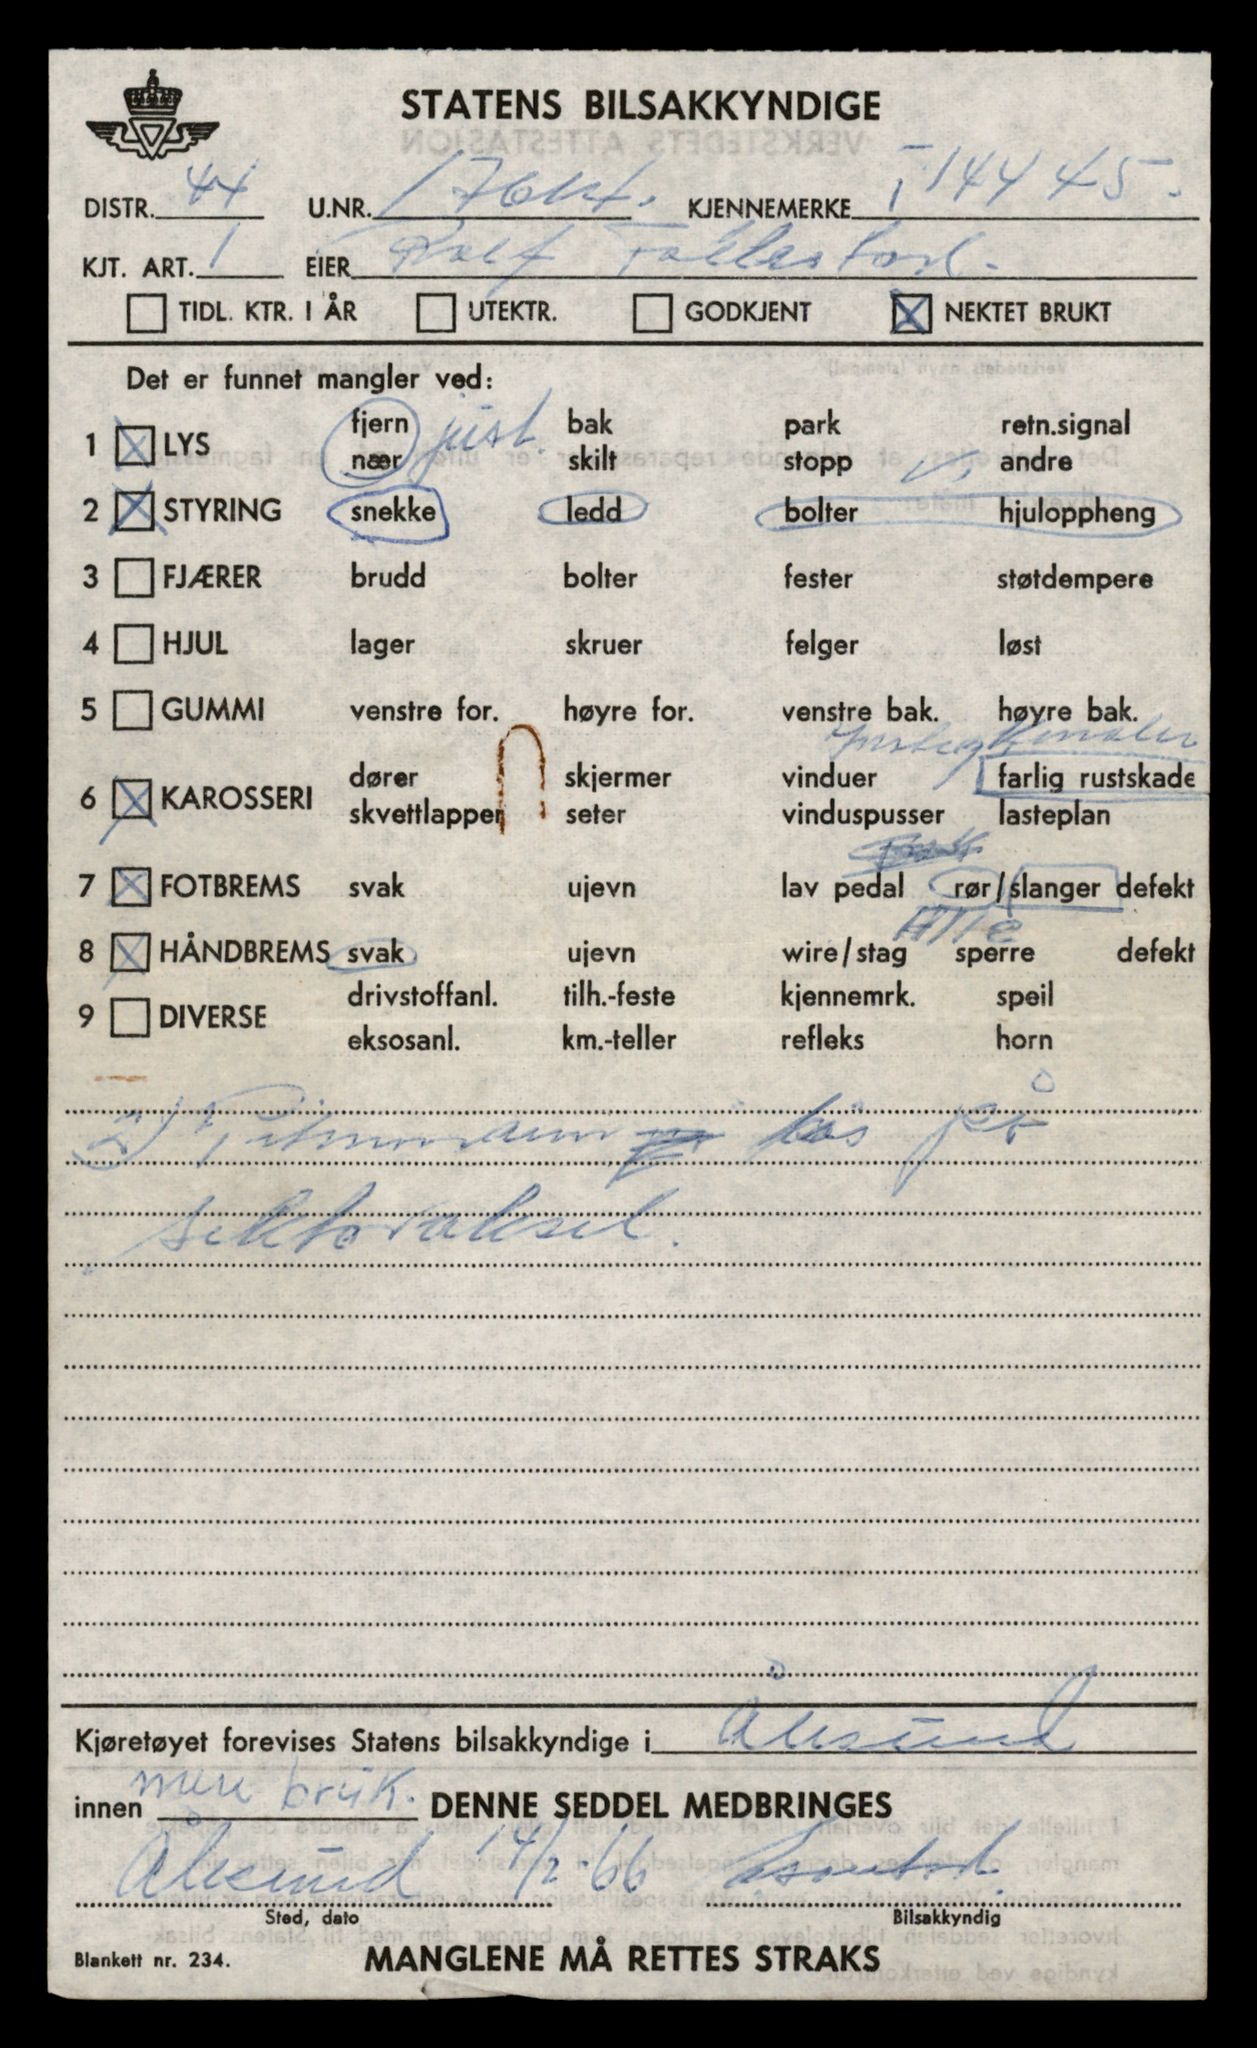 STATENS BILSAKKYNDIGE
DISTR. 44 U.NR. KJENNEMERKE T-14445-
KJT. ART. 1 EIER Rolf
TIDL. KTR. I ÅR UTEKTR. GODKJENT NEKTET BRUKT
Det er funnet mangler ved:
1 LYS fjern just. bak park retn.signal
nær skilt stopp andre
2 STYRING snekke ledd bolter hjuloppheng
3 FJÆRER brudd bolter fester støtdempere
4 HJUL lager skruer felger løst
5 GUMMI venstre for. høyre for. venstre bak. høyre bak.
kanaler
dører skjermer vinduer farlig rustskade
6 KAROSSERI skvettlapper seter vinduspusser lasteplan
7 FOTBREMS svak ujevn lav pedal rør/slanger defekt
Alle
8 HÅNDBREMS svak ujevn wire/stag sperre defekt
drivstoffanl. tilh.-feste kjennemrk. speil
9 DIVERSE eksosanl. km.-teller refleks horn
2) Pitmannarm løs på
sektoraksel.
Kjøretøyet forevises Statens bilsakkyndige i Ålesund
innen mere bruk. DENNE SEDDEL MEDBRINGES
Ålesund 14/2-66
Sted, dato Bilsakkyndig
Blankett nr. 234. MANGLENE MÅ RETTES STRAKS